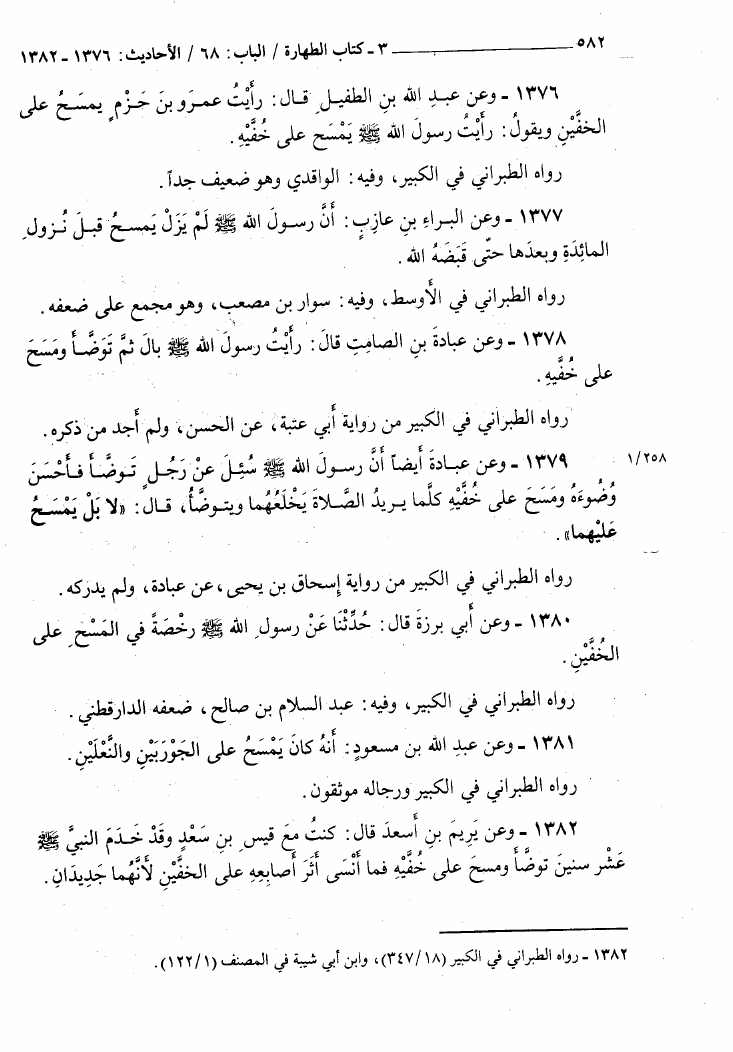 ٥٨٢ ــــــ ٣ ـ كتاب الطهارة / الباب: ٦٨ / الأحاديث: ١٣٧٦ ـ ١٣٨٢
١٣٧٦ ـ وعن عبدِ الله بنِ الطفيلِ قال: رأَيْتُ عمرَو بنَ حَزْمٍ يمسَحُ على
الخفَّيْنِ ويقولُ: رأَيْتُ رسولَ الله ﷺ يَمْسَح على خُفَّيْهِ.
رواه الطبراني في الكبير، وفيه: الواقدي وهو ضعيف جداً.
١٣٧٧ ـ وعن البراءِ بنِ عازبٍ: أنَّ رسولَ الله ﷺ لَمْ يَزَلْ يَمسحُ قبلَ نُزولِ
المائِدَةِ وبعدَها حتّى قَبَضَهُ الله.
رواه الطبراني في الأوسط، وفيه: سوار بن مصعب، وهو مجمع على ضعفه.
١٣٧٨ ـ وعن عبادةَ بنِ الصامتِ قالَ: رأَيْتُ رسولَ الله ﷺ بالَ ثمَّ تَوَضَّأَ ومَسَحَ
على خُفَّيهِ.
رواه الطبراني في الكبير من رواية أبي عتبة، عن الحسن، ولم أجد من ذكره.
١/٢٥٨ ١٣٧٩ ـ وعن عبادةَ أيضاً أنَّ رسولَ الله ﷺ سُئِلَ عنْ رَجُلٍ تَوضَّأَ فأَحْسَنَ
وُضُوءَهُ ومَسَحَ على خُفَّيْهِ كلَّما يريدُ الصَّلاةَ يَخْلَعُهُما ويتوضَّأُ، قال: «لا بَلْ يَمْسَحُ
عَلَيْهما».
رواه الطبراني في الكبير من رواية إسحاق بن يحيى، عن عبادة، ولم يدركه.
١٣٨٠ ـ وعن أبي برزةَ قال: حُدِّثْنَا عَنْ رسولِ الله ﷺ رخْصَةً في المَسْحِ على
الخُفَّيْنِ.
رواه الطبراني في الكبير، وفيه: عبد السلام بن صالح، ضعفه الدارقطني.
١٣٨١ ـ وعن عبدِ الله بن مسعودٍ: أنهُ كانَ يَمْسَحُ على الجَوْرَبَيْنِ والنَّعْلَيْنِ.
رواه الطبراني في الكبير ورجاله موثقون.
١٣٨٢ ـ وعن يَرِيمَ بنِ أسعدَ قال: كنتُ معَ قيسِ بنِ سَعْدٍ وقَدْ خَدَمَ النبيَّ ﷺ
عَشْر سنينَ توضَّأ ومسحَ على خُفَّيْهِ فما أَنْسَى أثَرَ أصابِعِهِ على الخفَّيْنِ لأَنَّهُما جَدِيدَانِ.
١٣٨٢ ـ رواه الطبراني في الكبير (٣٤٧/١٨)، وابن أبي شيبة في المصنف (١٢٢/١).